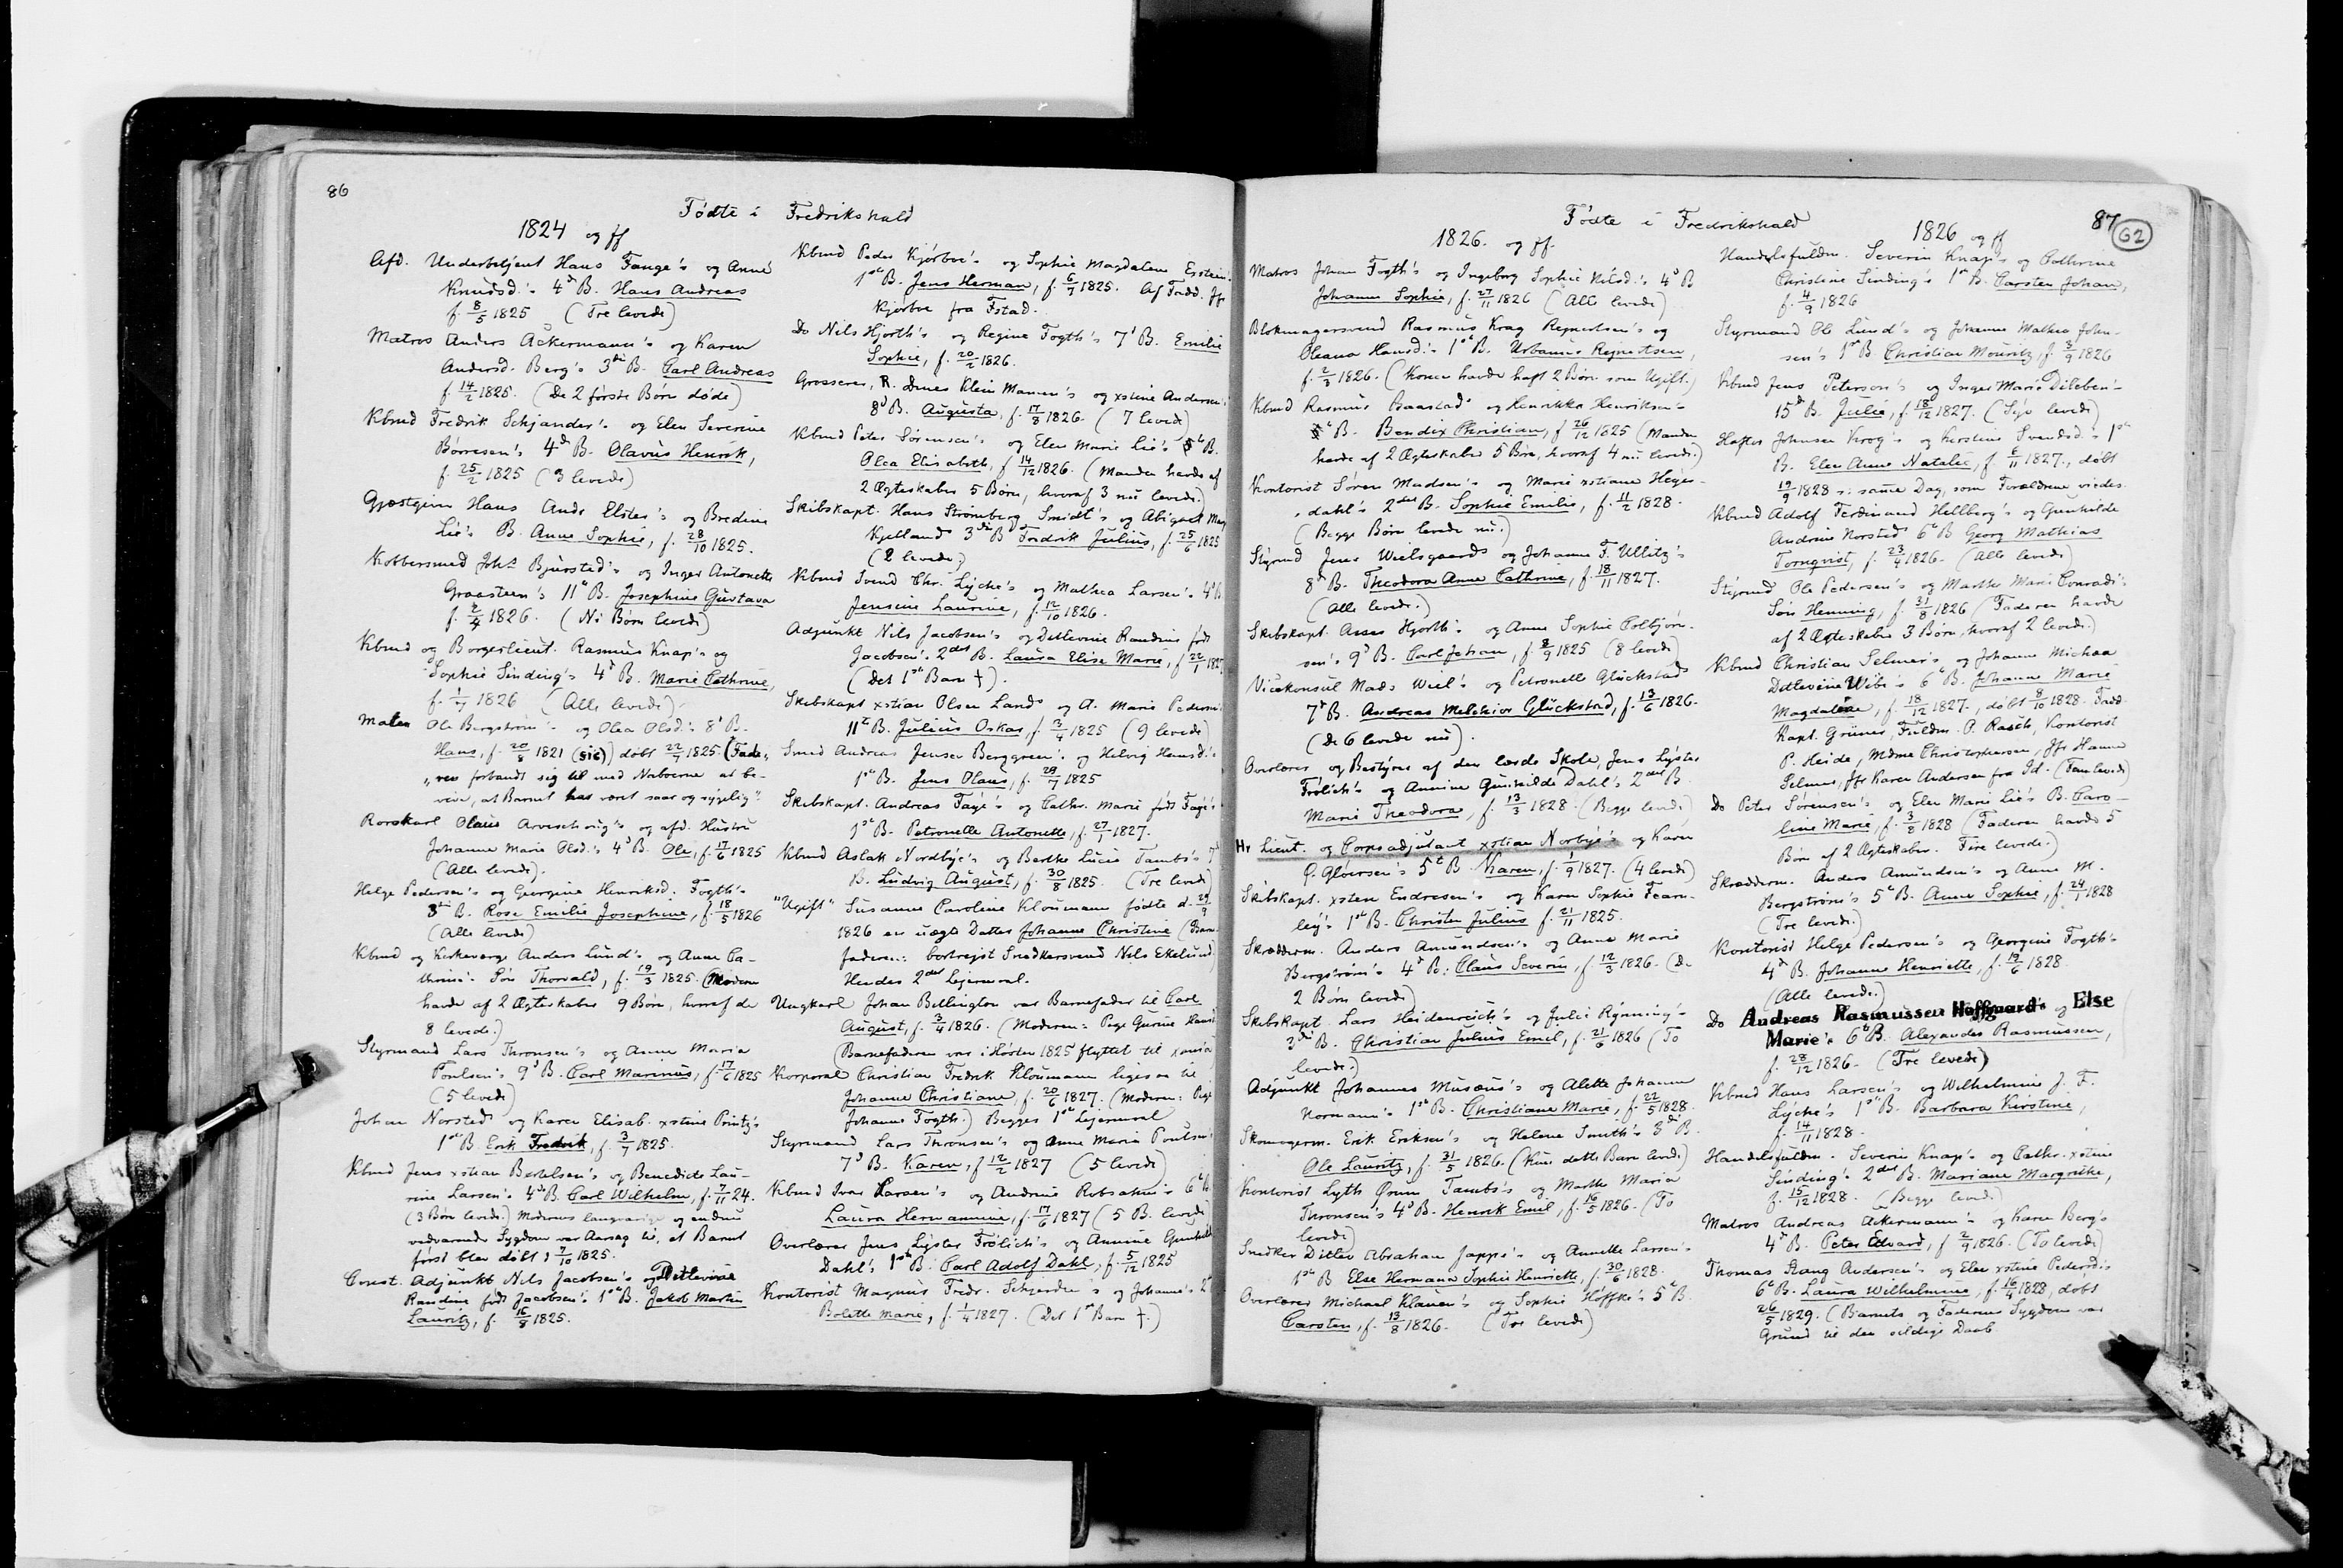 86
Födte i Fredrikshald
1824 og ff
Afd. Underbetjent Hans Fange's og Anne
Knudsd.'s 4d B. Hans Andreas
f. 8/5 1825 (Tre levede)
Matros Anders Ackermann's og Karen
Andersd. Berg's 3die B. Carl Andreas
f. 14/2 1825. (De 2 förste Börn döde)
Kbmd Fredrik Schjander's og Elen Severine
Börresen's 4d B. Olavus Henrik,
f. 25/2 1825 (3 levede)
Gjæstgiver Hans Andr Elster's og Bredine
Lie's B. Anne Sophie, f. 28/10 1825.
Kobbersmed Johs Bjursted's og Inger Antonette
Graasteen's 11te B. Josephine Gustava
f. 2/4 1826. (Ni Börn levede)
Kbmd og Borgerlieut. Rasmus Knap's og
Sophie Sinding's 4d B. Marie Cathrine,
f. 1/7 1826 (Alle levede)
Maler Ole Bergström's og Olea Olsd.'s 8d B.
Hans, f. 20/8 1821 (sic)) döbt 22/7 1825. (Fade-
„ren forbandt sig til med Naboerne at be-
vise, at Barnet har været saar og sygelig"
Rorskarl Olaus og afd. Hustru
Johanne Marie Olsd.'s 4d B. Ole, f. 17/6 1825
(Alle levede).
Helge Pedersen's og Georgine Henriksd. Fogth's
3die B. Rosa Emilie Josephine, f. 18/5 1826
(Alle levede)
Kbmd og Kirkeværge Anders Lund's og Anne Ca-
thrine's Sön Thorvald, f. 19/3 1825. (Moderen
havde af 2 Ægteskaber 9 Börn, hvoraf de
8 levede.)
Styrmand Lars Thronsen's og Anne Maria
Poulsen's 9d B. Carl Marinus, f. 17/6 1825
(5 levede)
Johan Norsted's og Karen Elisab. xstine Printz's
1ste B. Erik Fredrik, f. 3/7 1825.
Kbmd Jens xstian Bertelsen's og Benedicte Lau-
rine Larsen's 4de B. Carl Wilhelm, f. 7/11 24.
(3 Börn levede.) Moderens langvarige og endnu
vedvarende Sygdom var Aarsag til, at Barnet
först blev döbt d 7/10 1825.
Const. Adjunkt Nils Jacobsen's og Detlevine
Randine födt Jacobsen's 1ste B. Jakob Martin
Lauritz, f. 16/8 1825.
Kbmd Peder Kjörboe's og Sophie Magdalene Epstein's
1ste B. Jens Herman, f. 6/7 1825. Af Fadd. Jfr
Kjörboe fra Fstad.
Do Nils Hjorth's og Regine Fogth's 7d B. Emilie
Sophie, f. 20/2 1826.
Grosserer, R. Klein Mamen's og xstine Andersen's
8d B. Augusta, f. 17/8 1826. (7 levede)
Kbmd Peter Sörensen's og Elen Marie Lie's 5te B.
Olea Elisabeth, f 14/12 1826. (Manden havde af
2 Ægteskaber 5 Börn, hvoraf 3 nu levede.)
Skibskapt. Hans Strömberg Smidt's og Abigael Marg
Kjelland's 3die B Fredrik Julius, f. 25/6 1825
(2 levede)
Kbmd Svend Chr. Lyche's og Mathea Larsen's 4d B
Jensine Laurine, f. 12/10 1826.
Adjunkt Nils Jacobsen's og Detlevine Randine födt
Jacobsen's 2det B. Laura Elise Marie, f. 22/1 1827
(Det 1ste Barn †).
Skibskapt xstian Olsen Land's og A. Marie Pedersen's
11te B. Julius Oskar, f. 3/4 1825 (9 levede)
Smed Andreas Jensen Berggren's og Helvig Hansd.'s
1ste B. Jens Olaus, f. 29/7 1825
Skibskapt. Andreas Faye's og Cathr. Marie födt Faye's
1ste B. Petronelle Antonette, f. 27/1 1827.
Kbmd Aslak Nordbye's og Berthe Lucie Tambs's
B. Ludvig August, f. 30/8 1825. (Tre levede)
"Ugift" Susanne Caroline Kloumann födte d. 29/9
1826 en uægte Datter Johanne Christine (Barne-
faderen: bortrejst Snedkersvend Nils Ekelund)
Hendes 2det Lejermaal.
Ungkarl Johan Billington var Barnefader til Carl
August, f. 3/4 1826. (Moderen: Pige Gurine Hansd.
(Barnefaderen var i Hösten 1825 flyttet til xania)
Korporal Christian Fredrik Kloumann ligesaa til
Johanne Christiane, f. 20/6 1827. (Moderen: Pige
Johanne Fogth.) Begges 1ste Lejermaal
Styrmand Lars Thronsen's og Anne Maria Poulsen's
7d B. Karen, f 12/2 1827 (5 levede)
Kbmd Ivar Larsen's og Andrine Robsahm's 6te B.
Laura Hermannine, f. 17/6 1827 (5 B. levede)
Overlærer Jens Lyster Frölich's og Annine Gunhilde
Dahl's 1ste B. Carl Adolf Dahl, f. 5/12 1825
Kontorist Magnus Fredr. Schjerden's og Johanne's 2d
Bolette Marie, f. 1/4 1827. (Det 1ste Barn †.)
Födte i Fredrikshald
87
62
1826. og ff.
Matros Johan Fogth's og Ingeborg Sophie Nilsd.'s 4d B
Johanne Sophie, f. 27/11 1826 (Alle levede)
Blokmagersvend Rasmus Krag Rejnertsen's og
Oleana Hansd.'s 1ste B. Urbanus Rejnertsen,
f. 2/3 1826. (Konen havde haft 2 Börn som Ugift.)
Kbmd Rasmus Baastad's og Henrikka Henriksen's
5te B. Bendix Christian, f 26/12 1825 (Manden
havde af 2 Ægteskaber 5 Börn, hvoraf 4 nu levede.)
Kontorist Sören Madsen's og Marie xstiane Heyer-
dahl's 2det B. Sophie Emilie, f. 11/2 1828.
(Begge Börn levede nu.)
Styrmd Jens Wielsgaard's og Johanne F. Ullitz's
8d B. Theodora Anne Cathrine, f. 18/11 1827.
(Alle levede.)
Skibskapt. Asses Hjorth's og Anne Sophie Colbjörn-
sen's 9d B. Carl Johan, f. 8/9 1825 (8 levede)
Vicekonsul Mads Wiel's og Petronelle Glückstad's
7d B. Andreas Melchior Glückstad, f. 13/6 1826.
(De 6 levede nu).
Overlærer og Bestyrer af den lærde Skole, Jens Lyster
Frölich's og Annine Gunhilde Dahl's 2det B.
Marie Theodora, f. 13/3 1828. (Begge levede)
Hr Lieut. og Corpsadjutant xstian Norbye's og Karen
P. Glöersen's 5te B. Karen, f. 1/9 1827. (4 levede)
Skibskapt. xsten Endresen's og Karen Sophie Fearn-
ley's 1ste B. Christen Julius f. 21/11 1825.
Skrædderm. Anders Amundsen's og Anne Marie
Bergström's 4d B.: Claus Severin, f. 12/3 1826. (De
2 Börn levede)
Skibskapt. Lars Heidenreich's og Julie Rynning's
3die B. Christian Julius Emil, f. 21/6 1826 (To
levede.)
Adjunkt Johannes Musæus's og Alette Johanne
Normann's 1ste B. Christiane Marie, f. 22/5 1828.
Skomagerm. Erik Eriksen's og Helene Smith's 3die B.
Ole Lauritz, f. 31/5 1826. (Kun dette Barn levede)
Kontorist Lyth Örum Tambs's og Marthe Maria
Thronsen's 4d B. Henrik Emil, f. 16/5 1826. (To
levede)
Snedker Ditlev Abraham Jappe's og Annette Larsen's
1ste B Else Hermana Sophie Henriette, f. 30/6 1828.
Overlærer Michael Klauer's og Sophie Höffke's 5te B.
Carsten, f. 13/8 1826. (Tre levede)
1826 og ff
Handelsfuldm. Severin Knap's og Cathrine
Christine Sinding's 1ste B. Carsten Johan,
f. 4/9 1826
Styrmand Ole Lund's og Johanne Mathea John-
sen's 1ste B Christian Mouritz, f. 3/9 1826
Kbmd Jens Peterson's og Inger Marie
15de B. Julie, f. 18/12 1827. (Syv levede)
Johnsen Krog's og Kerstine Svendsd.'s 1ste
B. Elen Anne Natalie, f. 6/11 1827., döbt
19/9 1828 : samme Dag, som Forældrene viedes.
Kbmd Adolf Ferdinand Hellberg's og Gunhilde
Andrine Norsted's 6te B Georg Mathias
Tornqvist, f. 23/4 1826. (Alle levede)
Styrmd Ole Pedersen's og Marthe Marie Conradi's
Sön Henning, f. 31/8 1826 (Faderen havde
af 2 Ægteskaber 3 Börn, hvoraf 2 levede.)
Kbmd Christian Selmer's og Johanne Michaa
Detlevine Wibe's 6te B. Johanne Marie
Magdalene, f. 18/12 1827., döbt 8/10 1828. Fadd.
Kapt. Grüner, Fuldm. P. Rasch, Kontorist
P. Heide, Mdme Christophersen, Jfr Hanna
Selmer, Jfr Karen Andersen fra Id. (Fem levede)
Do Peter Sörensen's og Elen Marie Lie's B. Caro-
line Marie, f. 3/8 1828 (Faderen havde 5
Börn af 2 Ægteskaber. Fire levede.)
Skrædderm. Anders Amundsen's og Anne M.
Bergström's 5te B. Anne Sophie, f. 24/1 1828
(Tre levede.)
Kontorist Helge Pedersen's og Georgine Fogth's
4d B. Johanne Henriette, f. 19/6 1828.
(Alle levede.)
Do Andreas Rasmussen Hoffgaard's og Else
Marie's 6te B. Alexander Rasmussen,
f. 28/12 1826. (Tre levede)
Kbmd Hans Larsen's og Wilhelmine J. F.
Lyche's 1ste B. Barbara Kirstine,
f. 14/11 1828.
Handelsfuldm. Severin Knap's og Cathr. xstine
Sinding's 2det B. Mariane Margrethe,
f. 15/12 1828. (Begge levede)
Matros Andreas Ackermann's og Karen Berg's
4d B. Peter Edvard, f 2/9 1826. (To levede)
Thomas Stang Andersen's og Elen xstine Pedersd.'s
6te B. Laura Wilhelmine, f. 16/4 1828, döbt
26/5 1829. (Barnets og Faderens Sygdom var
Grund til den sildige Daab